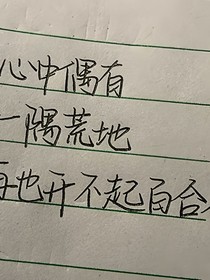 心中偶有
一隅荒地
再也开不起百合